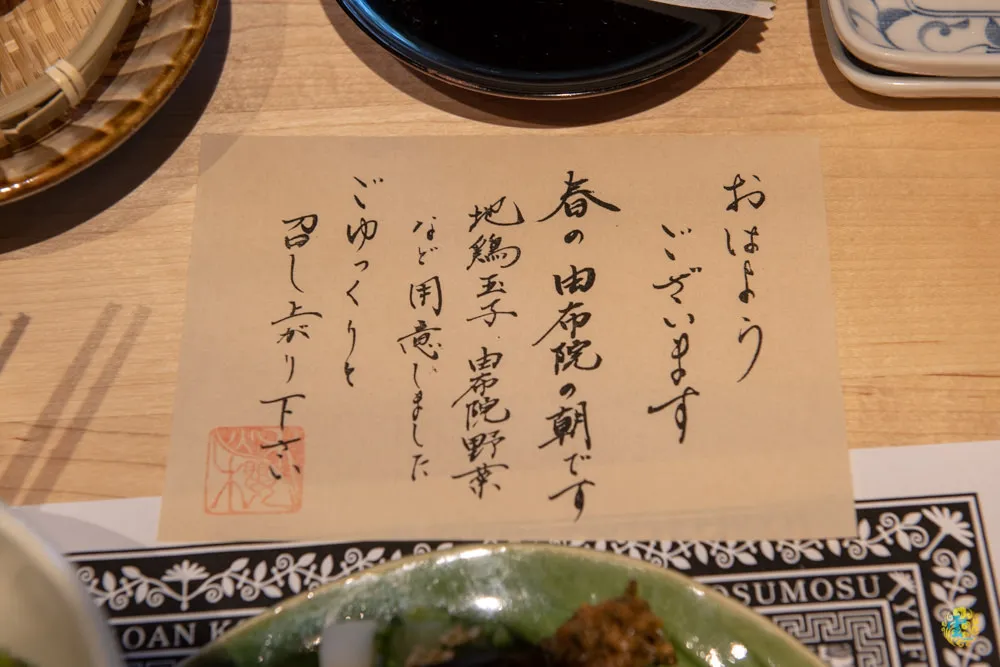 おはよう
ございます
春の由布院の朝です
地鶏玉子 由布院野菜
など用意しました
ごゆっくりと
召し上がり下さい
OSUMOSU